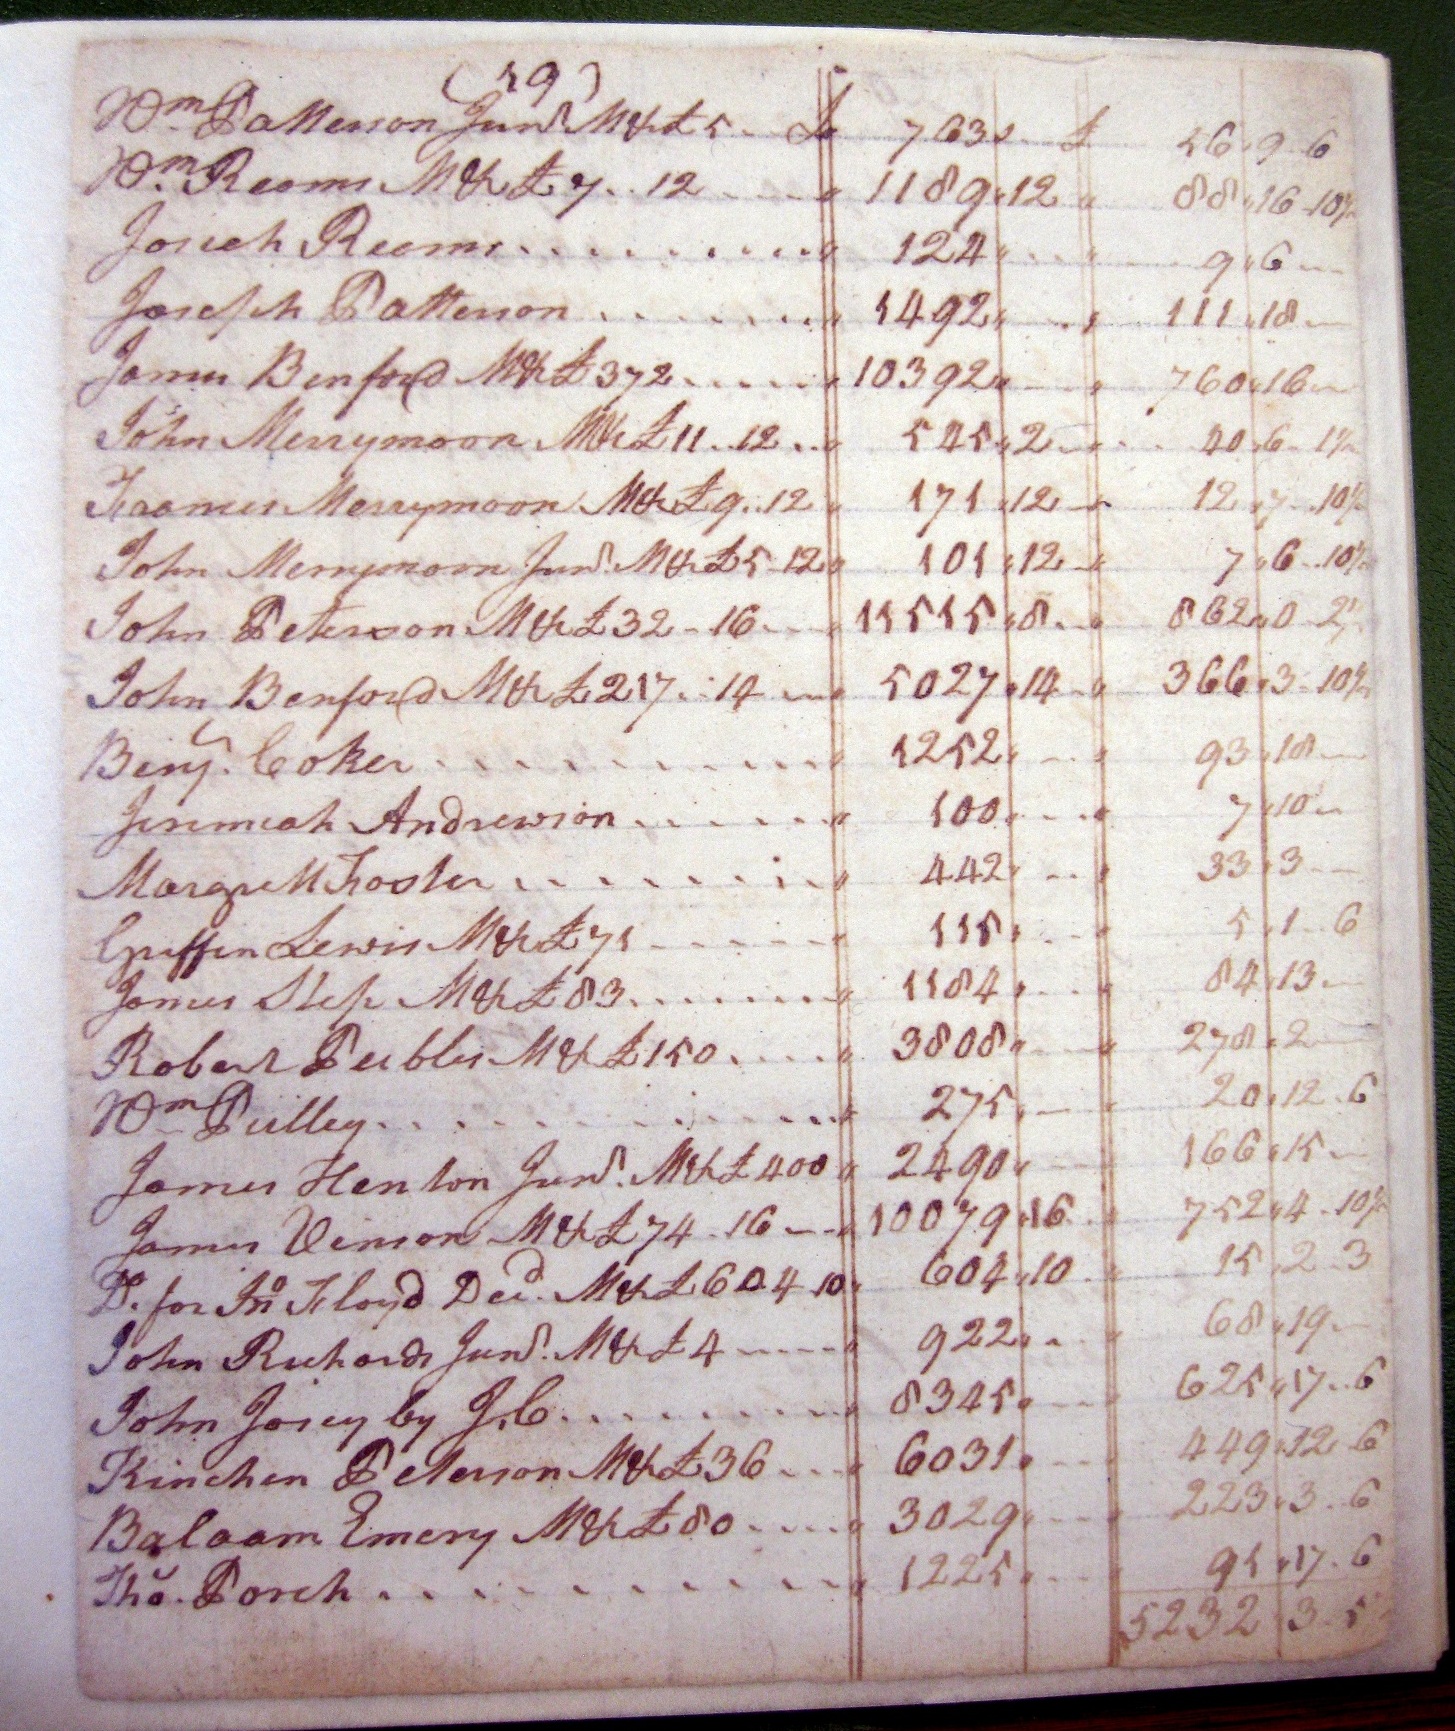 (59)
Wm. Patterson Junr. M&c £5 £ 763 " £ 56 " 9 .. 6
Wm. Reams M&c £7 .. 12 " 1189 " 12 " 88 " 16 .. 10½
Josiah Reams " 124 " " 9 " 6
Joseph Patterson " 1492 " " 111 " 18
James Benford M&c £372 " 10392 " " 760 " 16
John Merrymoon M&c £11 .. 12 " 545 " 2 " 40 " 6 .. 1½
Frances Merrymoon M&c £9 .. 12 " 171 " 12 " 12 " 7 .. 10½
John Merrymoon Junr. M&c £5 .. 12 " 101 " 12 " 7 " 6 .. 10½
John Peterson M&c £32 .. 16 " 11515 " 8 " 862 " 0 .. 2
John Benford M&c £217 .. 14 " 5027 " 14 " 366 " 3 .. 10½
Benj. Coker " 1252 " " 93 " 18
Jeremiah Andrewson " 100 " " 7 " 10
Margrett Foster " 442 " " 33 " 3
Griffin Lewis M&c £71 " 115 " " 5 " 1 .. 6
James Step M&c £83 " 1184 " " 84 " 13
Robert Peebles M&c £150 " 3808 " " 278 " 2
Wm. Pilley " 275 " " 20 " 12 .. 6
James Henton Junr. M&c £400 " 2490 " " 166 " 15
James Vinson M&c £74 .. 16 " 10079 " 16 " 752 " 4 .. 10½
Do. for Jno. Floyd Decd. M&c £604 .. 10 " 604 " 10 " 15 " 2 .. 3
John Richards Junr. M&c £4 " 922 " " 68 " 19
John Josey by J.C. " 8345 " " 625 " 17 .. 6
Kinchen Peterson M&c £36 " 6031 " " 449 " 12 .. 6
Balaam Emery M&c £80 " 3029 " " 223 " 3 .. 6
Tho. Porch " 1225 " " 91 " 17 .. 6
5232 " 3 .. 5